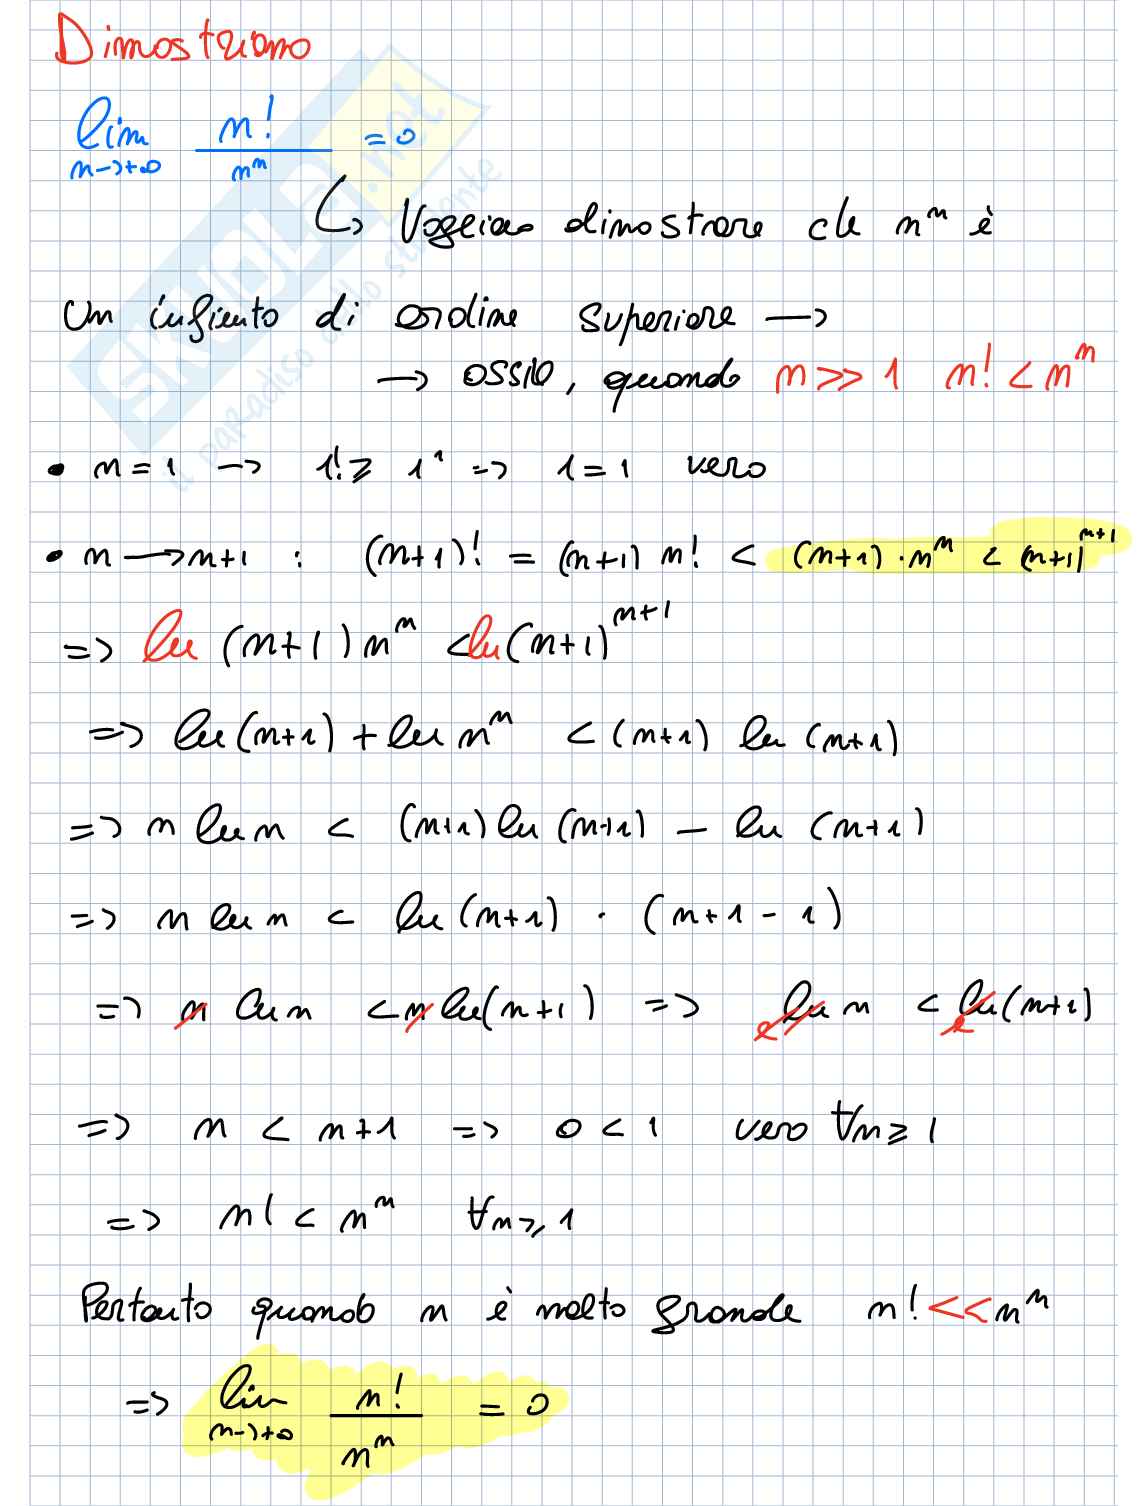 Dimostriamo
lim n→+∞ n!/nⁿ = 0
↳ Vogliamo dimostrare che nⁿ è
un infinito di ordine superiore →
→ ossia, quando n >> 1 n! < nⁿ
• n = 1 → 1! ≥ 1¹ => 1 = 1 vero
• n → n+1 : (n+1)! = (n+1) n! < (n+1) · nⁿ < (n+1)ⁿ⁺¹
=> ln (n+1) nⁿ < ln (n+1)ⁿ⁺¹
=> ln (n+1) + ln nⁿ < (n+1) ln (n+1)
=> n ln n < (n+1) ln (n+1) – ln (n+1)
=> n ln n < ln (n+1) · (n+1-1)
=> n ln n < n ln (n+1) => e ln n < e ln (n+1)
=> n < n+1 => 0 < 1 vero ∀n ≥ 1
=> n! < nⁿ ∀n ≥ 1
Pertanto quando n è molto grande n! << nⁿ
=> lim n→+∞ n!/nⁿ = 0
SKUOLA.net
il paradiso dello studente